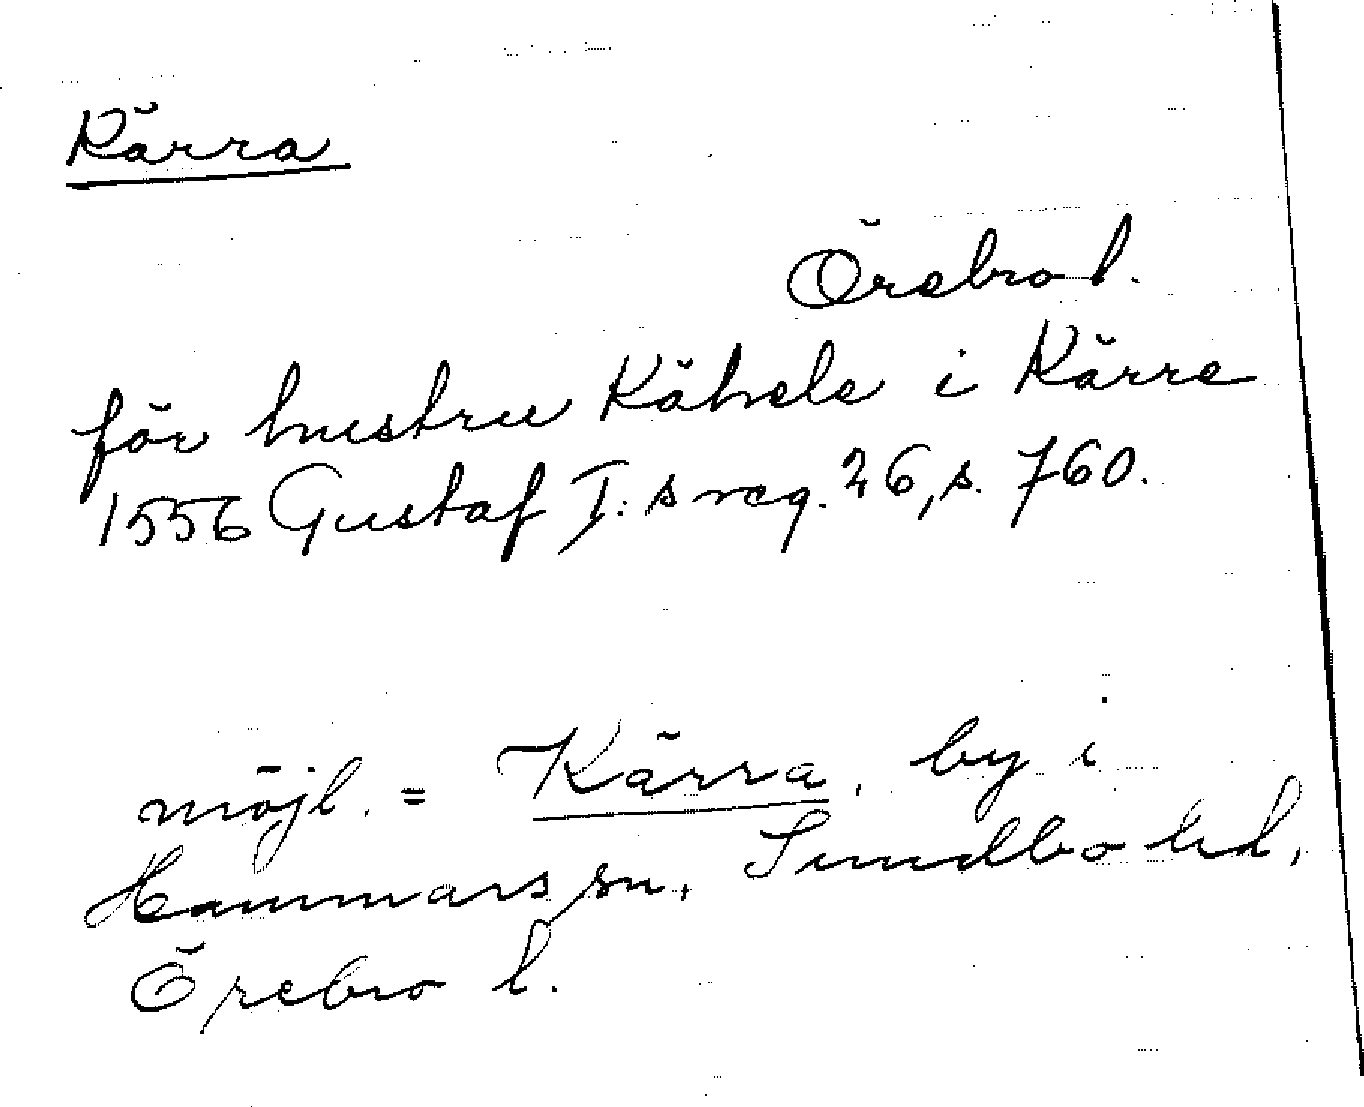 Kärra
Örebro l.
för hustru Kähele i Kärre
1556 Gustaf I:s reg. 26, s. 760.
möjl. = Kärra, by i
Hammars sn, Sundbo hd,
Örebro l.